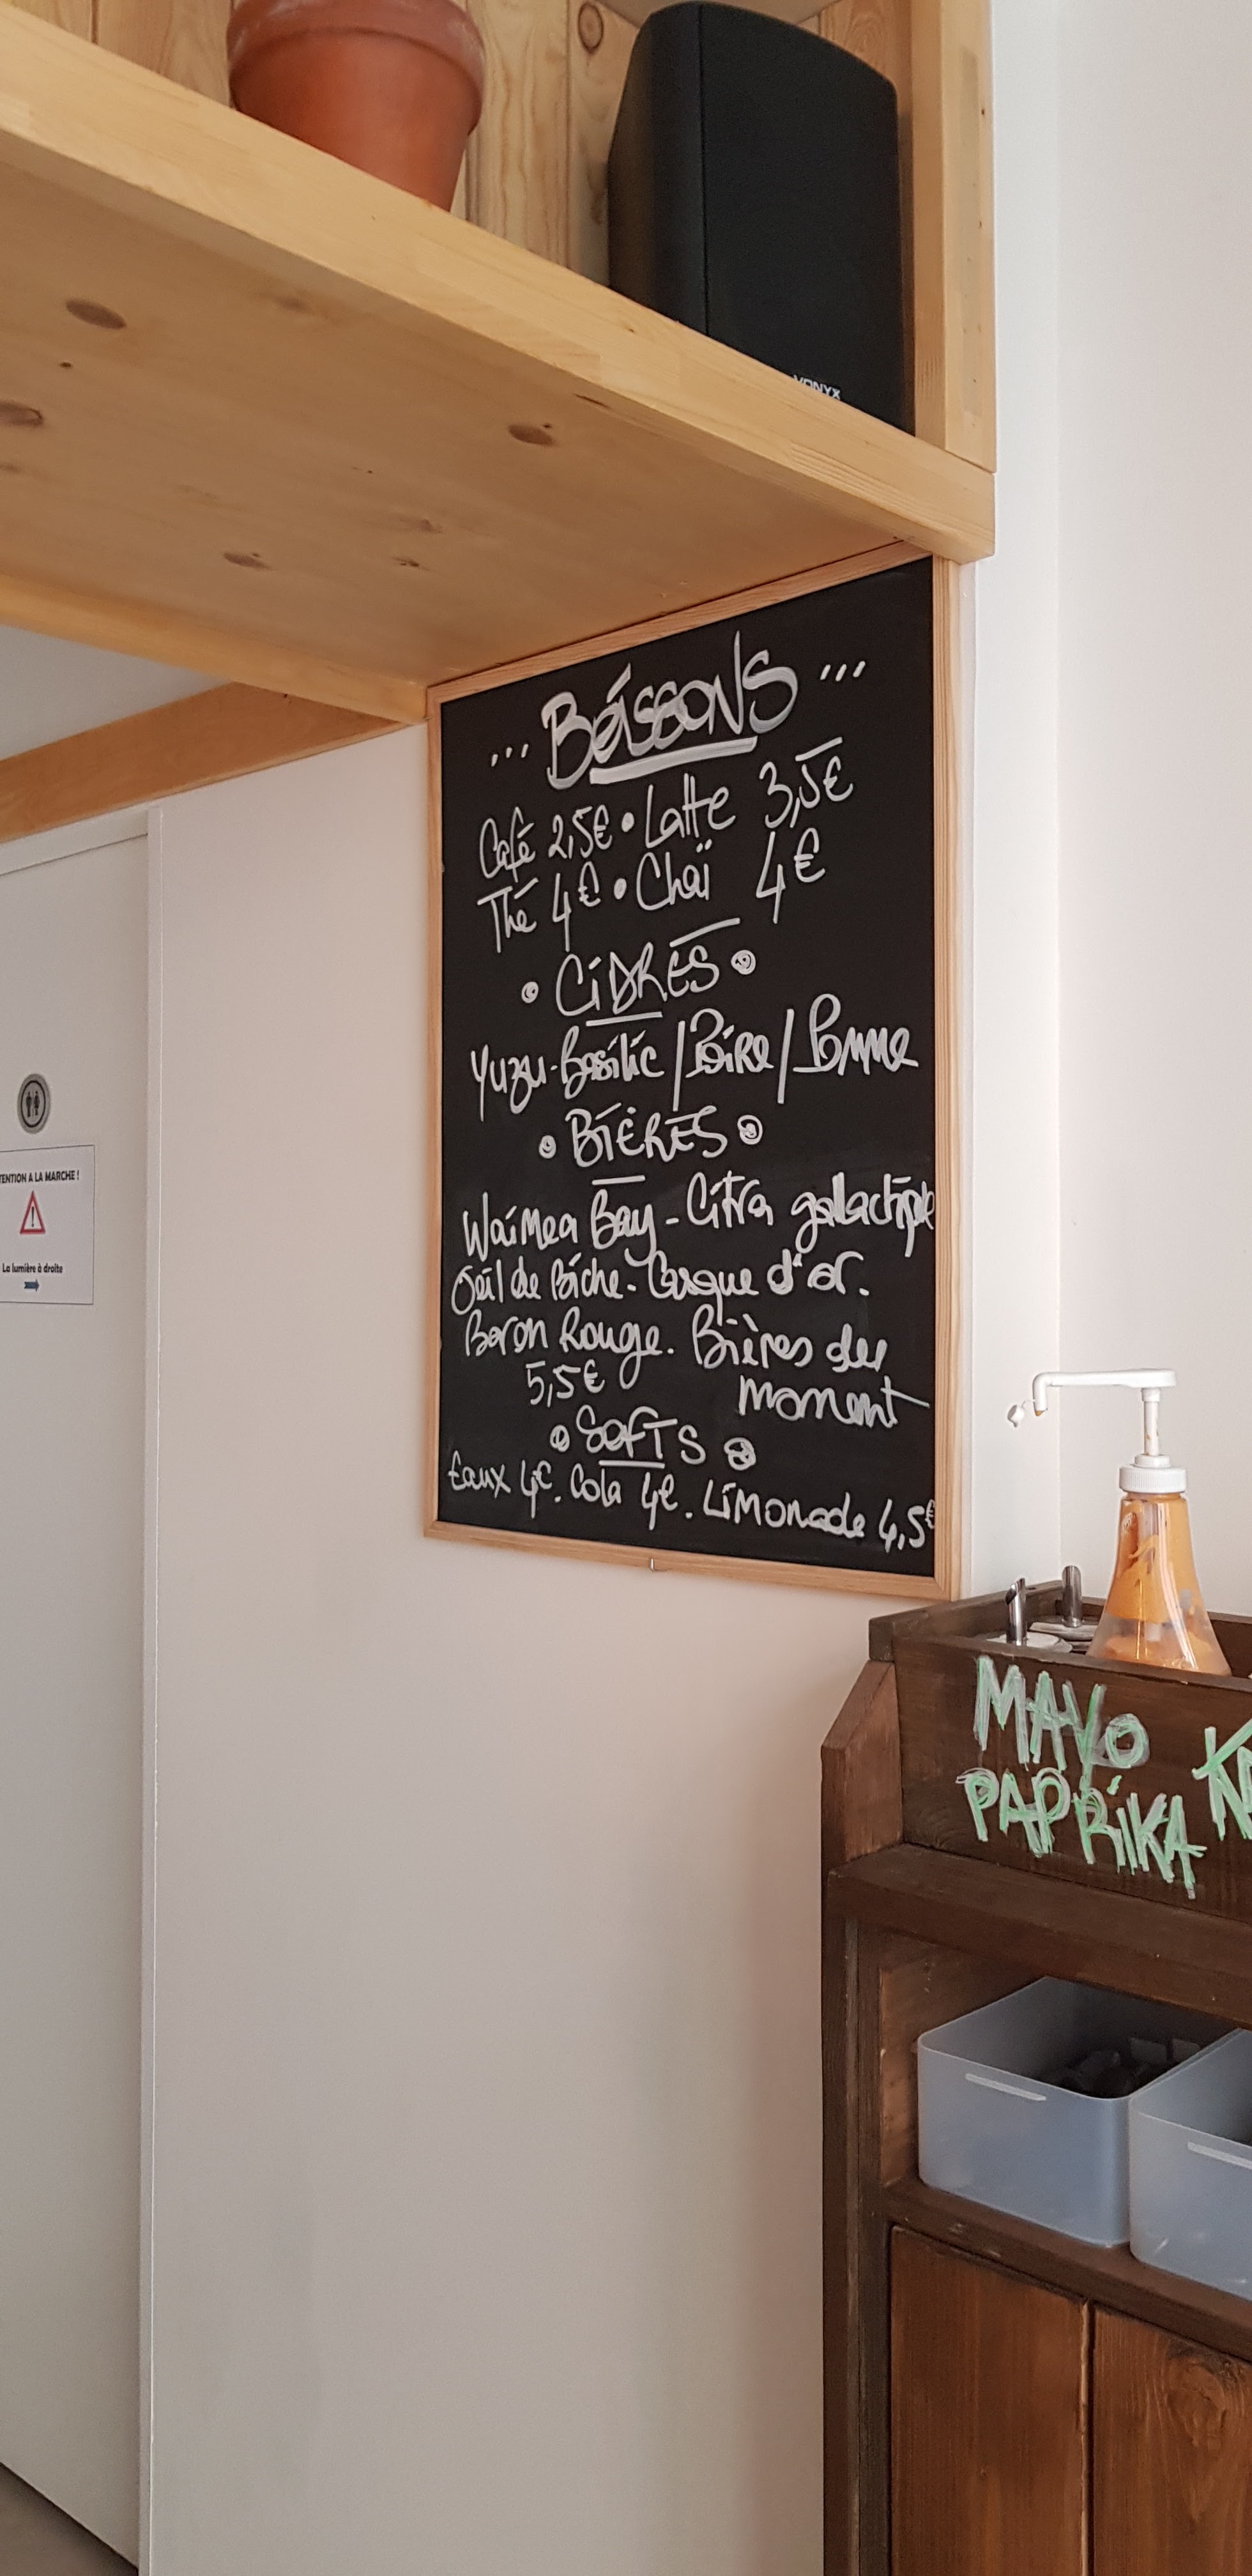 VONYX
... BOISSONS ...
Café 2,5€ • Latte 3,5€
Thé 4€ • Chaï 4€
• CiDRES •
Yuzu-Basilic / Poire / Pomme
• BIÈRES •
Waimea Bay - Citra galactique
Oeil de Biche - Casque d'or.
Baron Rouge. Bières du
5,5€ moment
• SOFTS •
Eaux 4€. Cola 4€. LiMonade 4,5€
TENTION A LA MARCHE !
La lumière à droite
MAYO
PAPRIKA